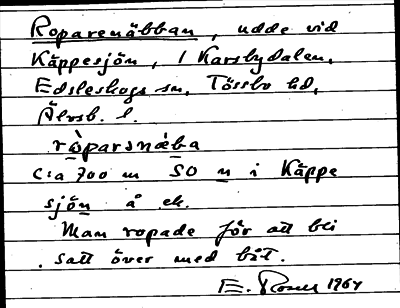 Roparenäbban, udde vid
Käppesjön, i Karsbydalen,
Edsleskogs sn, Tössbo hd,
Älvsb. l.
rɷ̀parsnæba
c:a 700 m SO n i Käppe
sjön å ek.
Man ropade för att bli
satt över med båt.
E. 1964